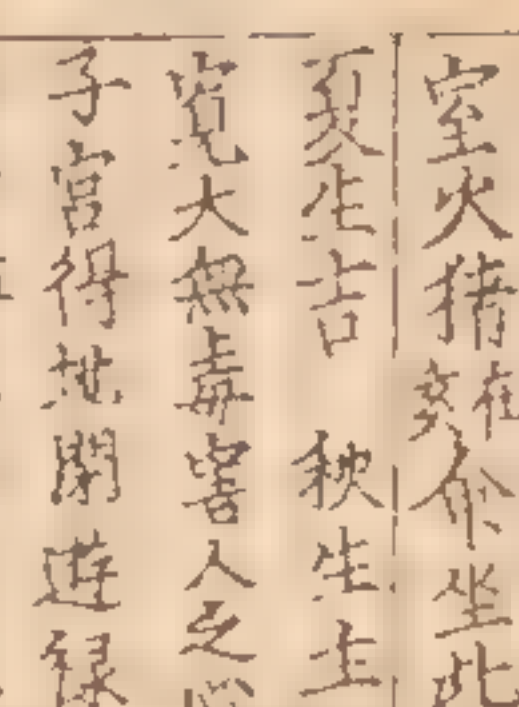 室火猪在亥尒坐此
夏生吉 秋生主
寛大無毒害人之心
子宮得地閑遊緑